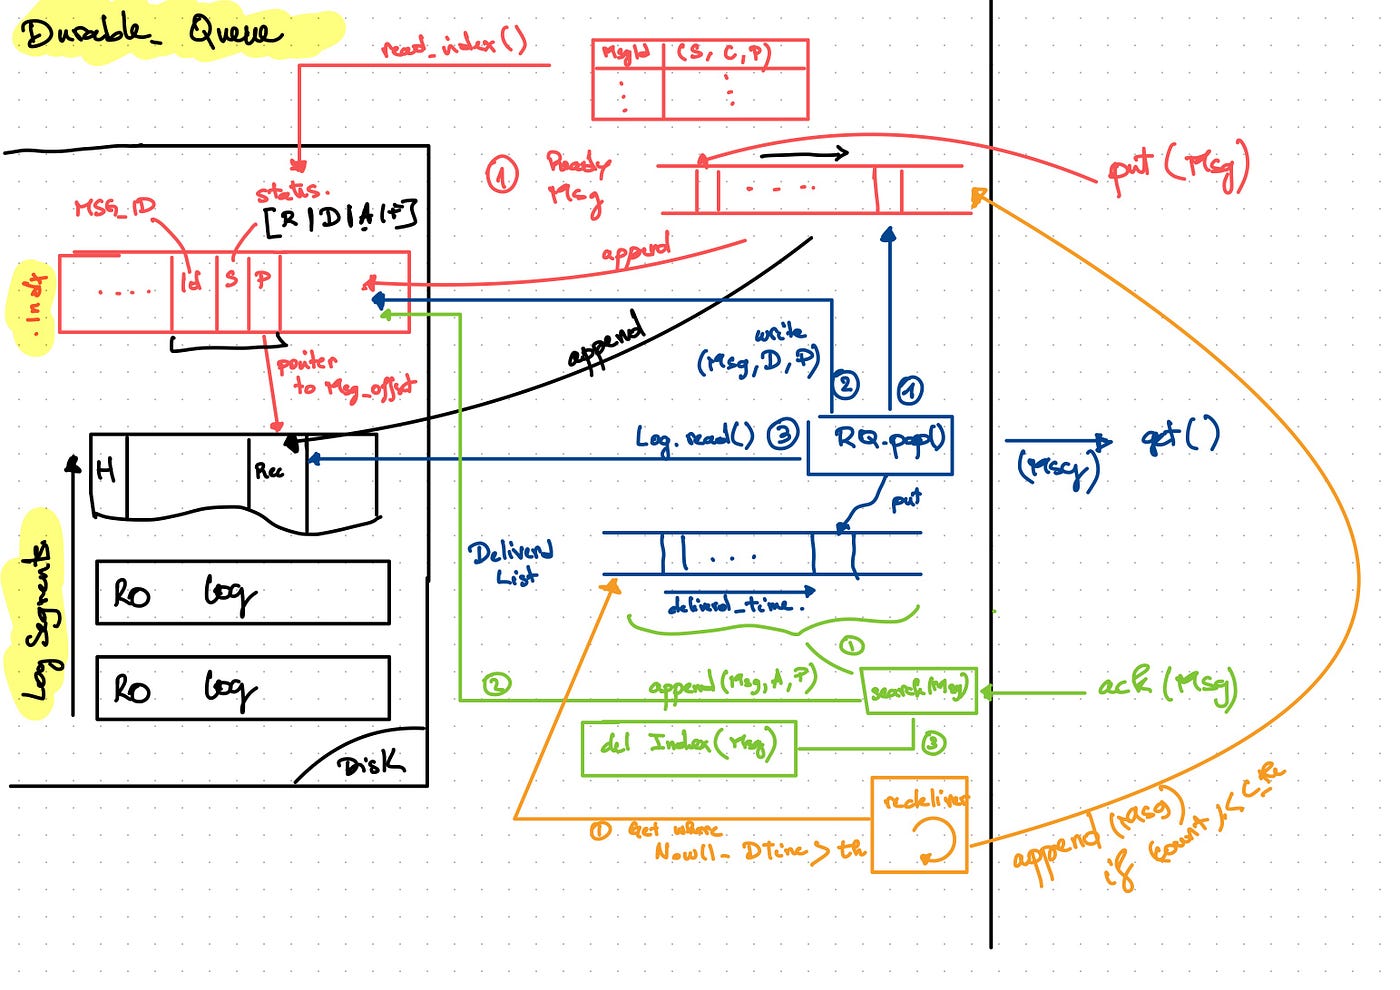 Durable_ Queue
read_index()
MsgId (S, C, P)
① Ready
Msg
put (Msg)
status.
[R | D | A | F]
MSG_ID
.Indx
Id S P
append
append
pointer
to Msg_offset
write
(Msg, D, P)
②
①
Log.read() ③
RQ.pop()
get()
(Msg)
put
H
Rec
Deliverd
List
deliverd_time.
Log Segments
RO Log
RO Log
Disk
①
②
append (Msg, A, P)
search(Msg)
ack (Msg)
del Index(Msg)
③
redeliver
① Get where
Now() - DTime > th
append (Msg)
if count <